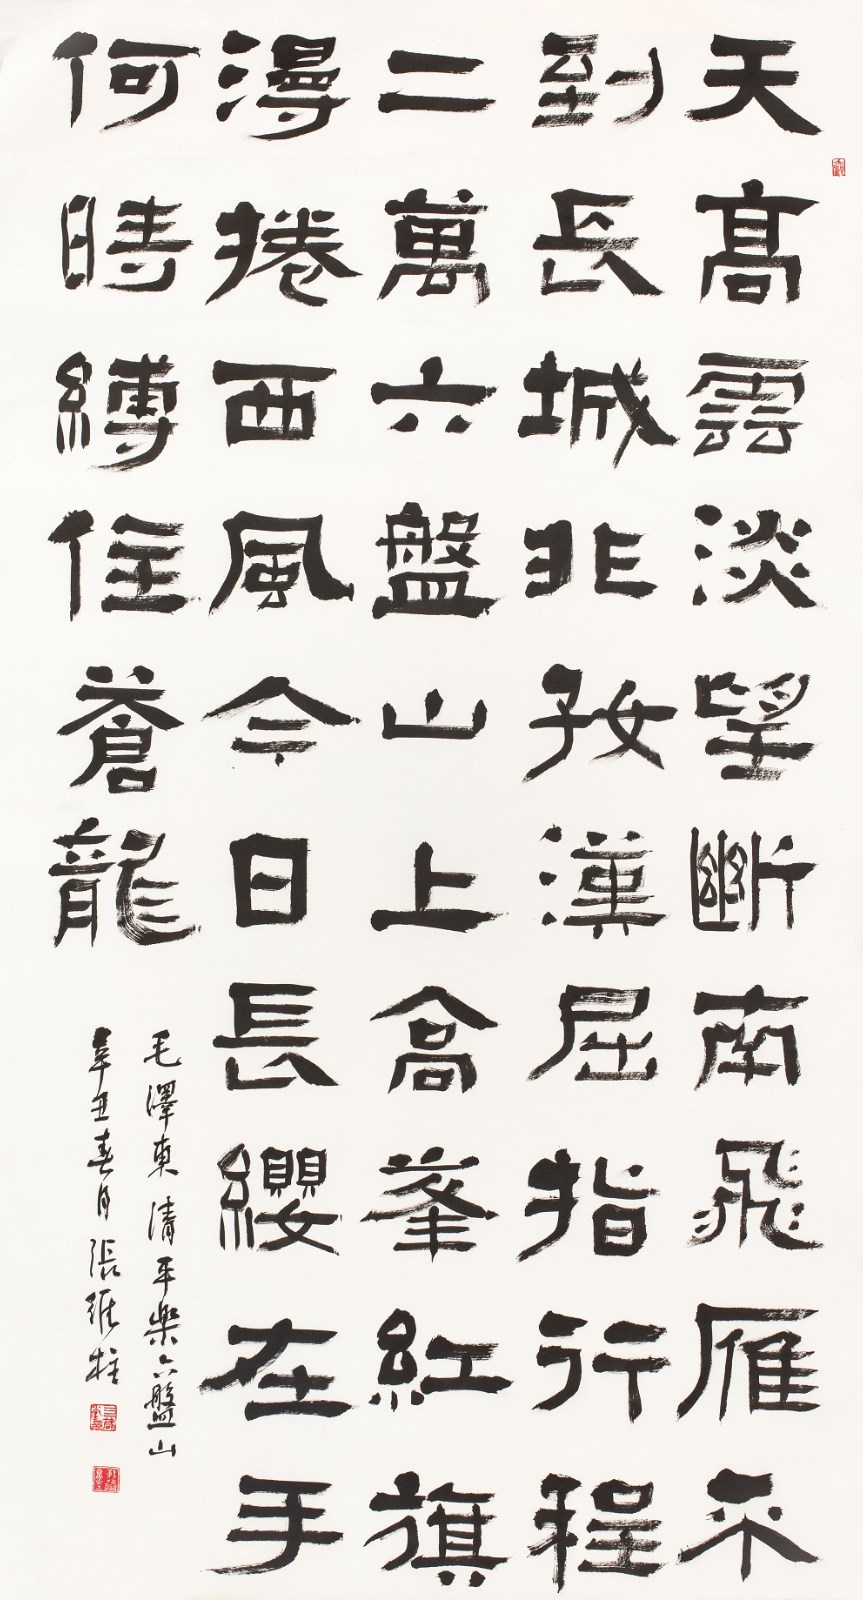 天高雲淡望斷南飛雁不
到長城非好漢屈指行程
二萬六盤山上高峯紅旗
漫捲西風今日長纓在手
何時縛住蒼龍
毛澤東清平樂六盤山
辛丑春月張維柱